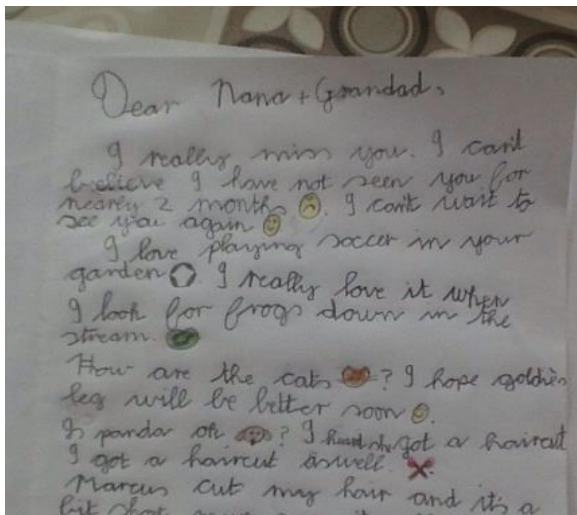 Dear Nana + Grandad,
I really miss you. I can't
believe I have not seen you for
nearly 2 months. I can't wait to
see you again
I love playing soccer in your
garden. I really love it when
I look for frogs down in the
stream.
How are the cats? I hope goldies
leg will be better soon.
Is panda ok? I heard she got a haircut
I got a haircut aswell.
Marcus cut my hair and it's a
bit